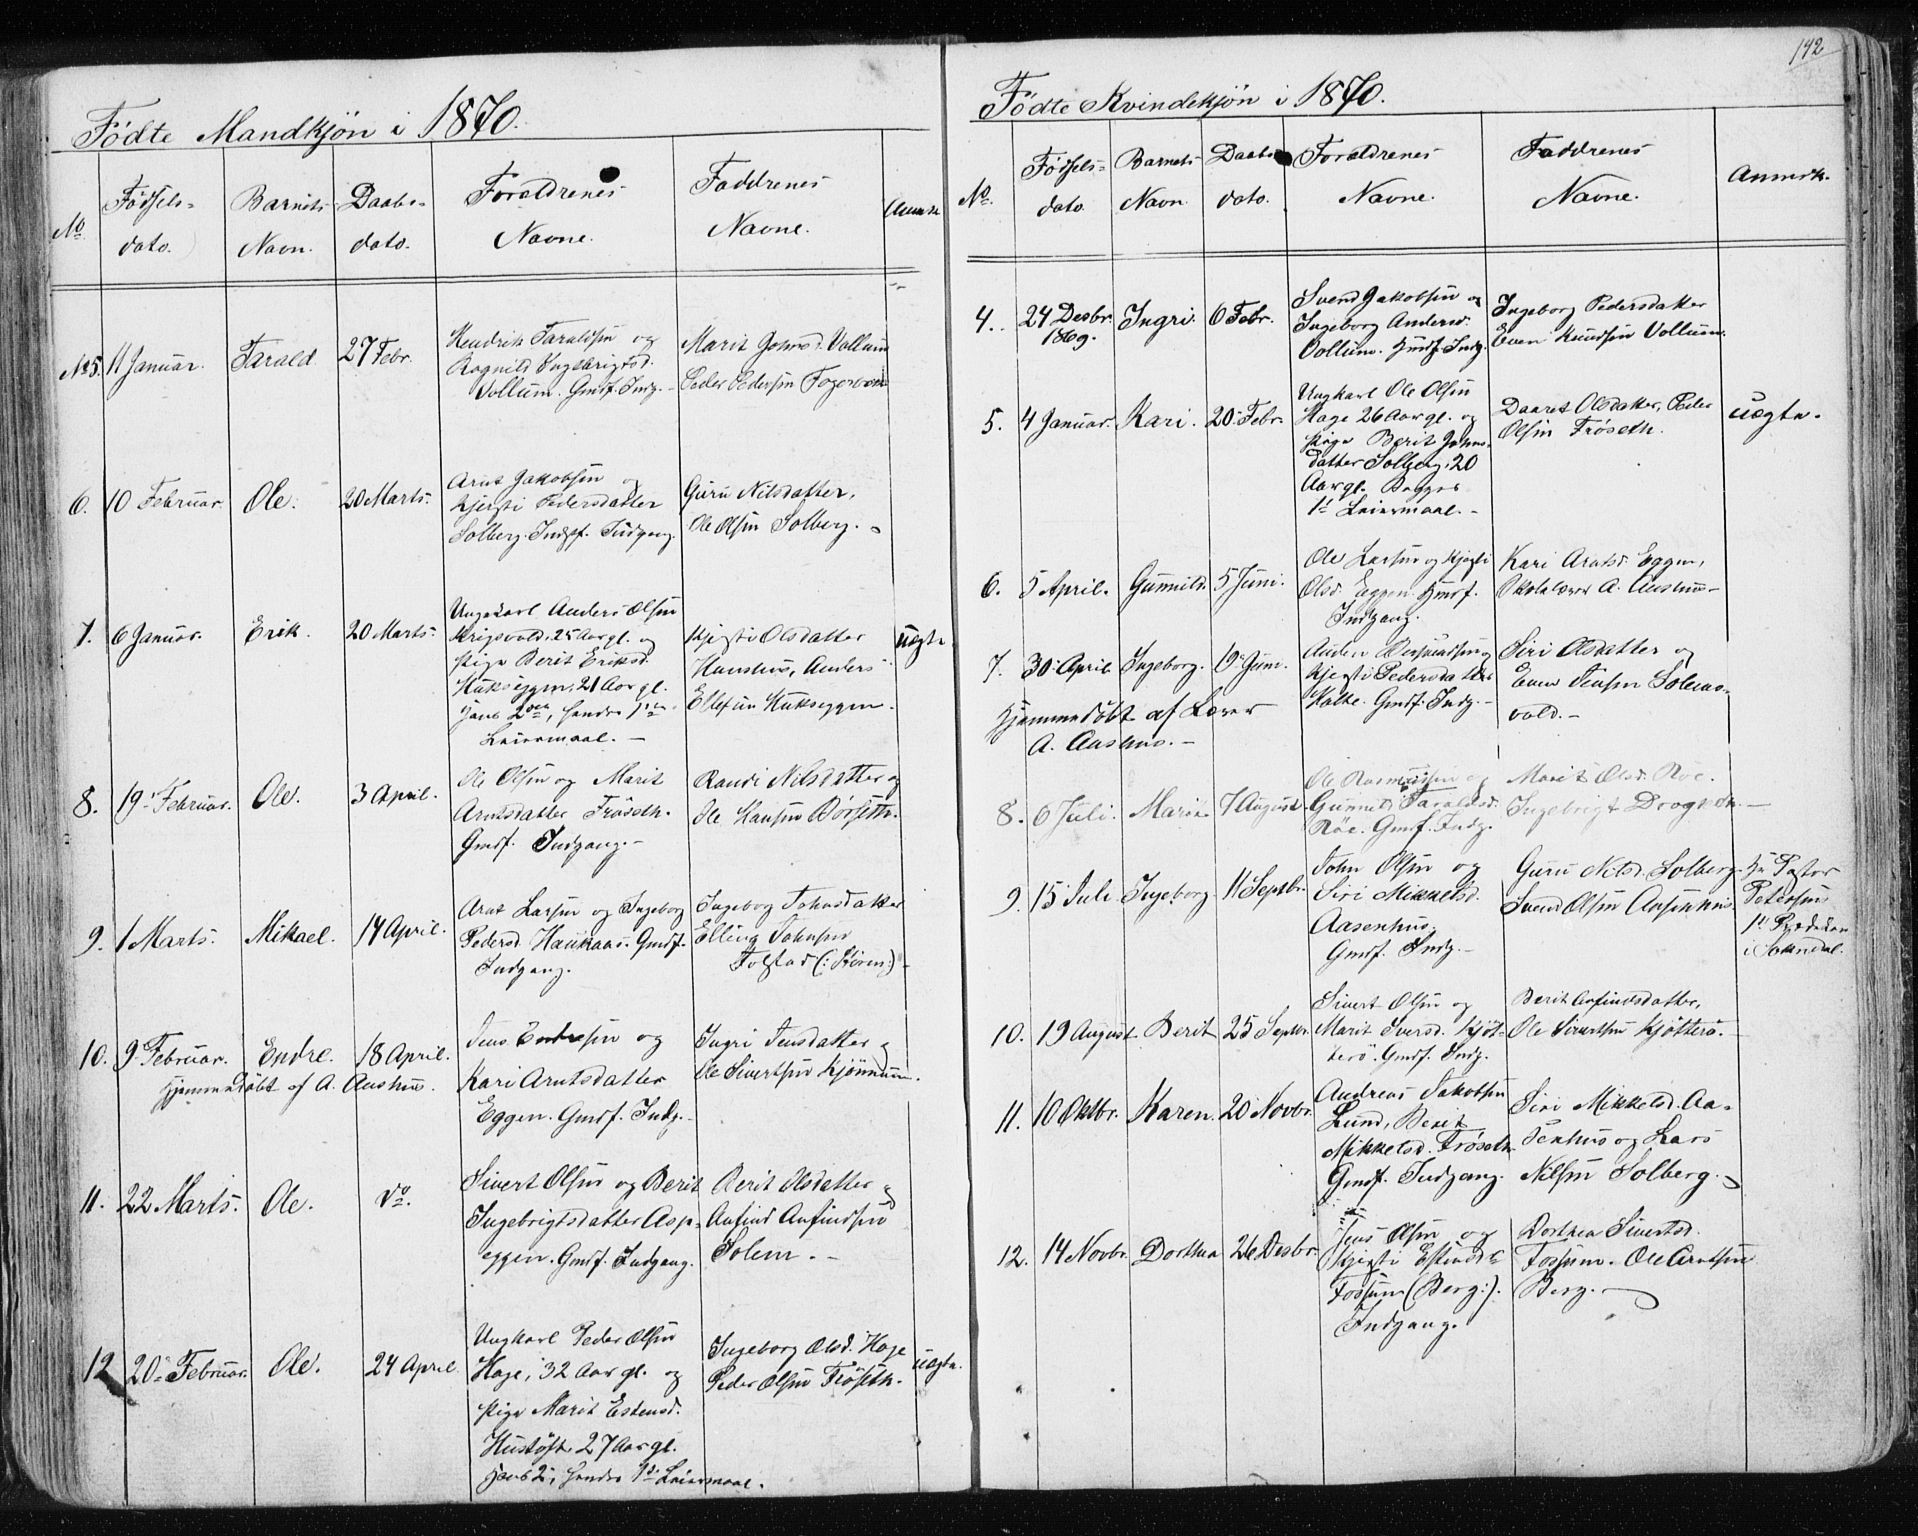 Fødte Mandkjøn i 1870.
No.
Fødsels-
dato.
Barnets
Navn.
Daabs-
dato.
Forældrenes
Navne.
Faddrenes
Navne.
No 5. 11 Januar. Tarald. 27 Febr.
Hendrik Taraldsen og
Ragnild Ingebrigtsd.
Vollum. Gmdf. Indg.
Marit Jonsd. Vollum
Peder Pedersen
6. 10 Februar. Ole. 20 Marts.
Arnt Jakobsen og
Kjersti Pedersdatter
Solberg. Indgang.
Guru Nilsdatter,
Ole Olsen Solberg.
7. 6 Januar. Erik. 20 Marts.
Ungkarl Anders Olsen
Krigsvold, 25 Aar gl. og
Pige Berit Eriksd.
Hukseggen, 21 Aar gl.
Hans 2den, hendes 1ste
Leiermaal.
Kjersti Olsdatter
Haushus, Anders
Ellefsen Hukseggen.
uægte
8. 19 Februar. Ole. 3 April.
Ole Olsen og Marit
Arntsdatter Frøseth.
Gmdf. Indgang.
Randi Nilsdatter og
Ole Hansen Børseth.
9. 1 Marts. Mikael. 14 April.
Arnt Larsen og Ingeborg
Pedersd. Haukaas. Gmdf.
Indgang.
Ingeborg Johnsdatter
Elling Johnsen
Folstad (: Støren:)
10. 9 Februar. Endre. 18 April.
Hjemmedøbt af A. Aashus.
Jens Endresen og
Kari Arntsdatter
Eggen. Gmdf. Indg.
Ingri Jensdatter
Ole Sivertsen
11. 22 Marts. Ole. do.
Sivert Olsen og Berit
Ingebrigtsdatter Asp-
eggen. Gmdf. Indgang.
Berit Olsdatter
Anfind Anfindsen
Solem.
12 20 Februar. Ole. 24 April.
Ungkarl Peder Olsen
Hage, 32 Aar gl. og
Pige Marit Estensd.
27 Aar gl.
Hans 2, hendes 1ste Leiermaal.
Ingeborg Olsd. Hage
Peder Olsen Frøseth.
uægte.
142
Fødte Kvindekjøn i 1870.
No.
Fødsels-
dato.
Barnets
Navn.
Daabs
dato.
Forældrenes
Navne.
Faddrenes
Navne.
Anmerk.
4. 24 Desbr. Ingri. 6 Febr.
1869.
Svend Jakobsen og
Ingeborg Andersd.
Vollum. Gmdf. Indg.
Ingeborg Pedersdatter
Even Knudsen Vollum.
5. 4 Januar. Kari. 20 Febr.
Ungkarl Ole Olsen
Hage 26 Aar gl. og
Pige Berit Johns-
datter Solberg, 20
Aar gl. Begges
1ste Leiermaal.
Daaret Olsdatter, Peder
Olsen Frøseth.
uægte.
6. 5 April. Gunnild. 5 Juni.
Ole Larsen og Kjersti
Olsd. Eggen. Gmdf.
Indgang.
Kari Arntsd. Eggen,
Skolelærer A. Aashus
7. 30 April Ingeborg. 19 Juni.
Hjemmedøbt af Lærer
A. Aashus.
Kjersti Pedersdatter
Gmdf. Indg.
Siri Olsdatter og
Even Jensen Solems-
vold.
8. 6 Juli. Marit 7 August.
Ole Rasmussen og
Gunnild Taraldsd.
Röe. Gmdf. Indg.
Marit Olsd. Röe.
Ingebrigt Drogseth.
9. 15 Juli Ingeborg. 11 Septbr.
John Olsen og
Siri Mikkelsd.
Aasenhus.
Gmdf. Indg.
Guru Nilsd. Solberg
Svend Olsen Aasenhus.
Hr. Pastor
Petersens
1ste Prædiken
i Soknedal.
10. 19 August Berit 25 Septbr.
Sivert Olsen og
Marit Iversd. Kjöt-
terö. Gmdf. Indg.
Berit Anfindsdatter,
Ole Sivertsen Kjötterö.
11. 10 Oktbr. Karen. 20 Novbr.
Andreas Jakobsen
Lund, Berit
Mikkelsd. Frøseth
Gmdf. Indgang.
Siri Mikkelsd. Aa-
senhus og Lars
Nilsen Solberg.
12. 14 Novbr. Dorthea 26 Desbr.
Jens Olsen og
Kjersti Estensd.
Fossum (Berg:).
Indgang.
Dorthea Sivertsd.
Fossum. Ole Arntsen
Berg.